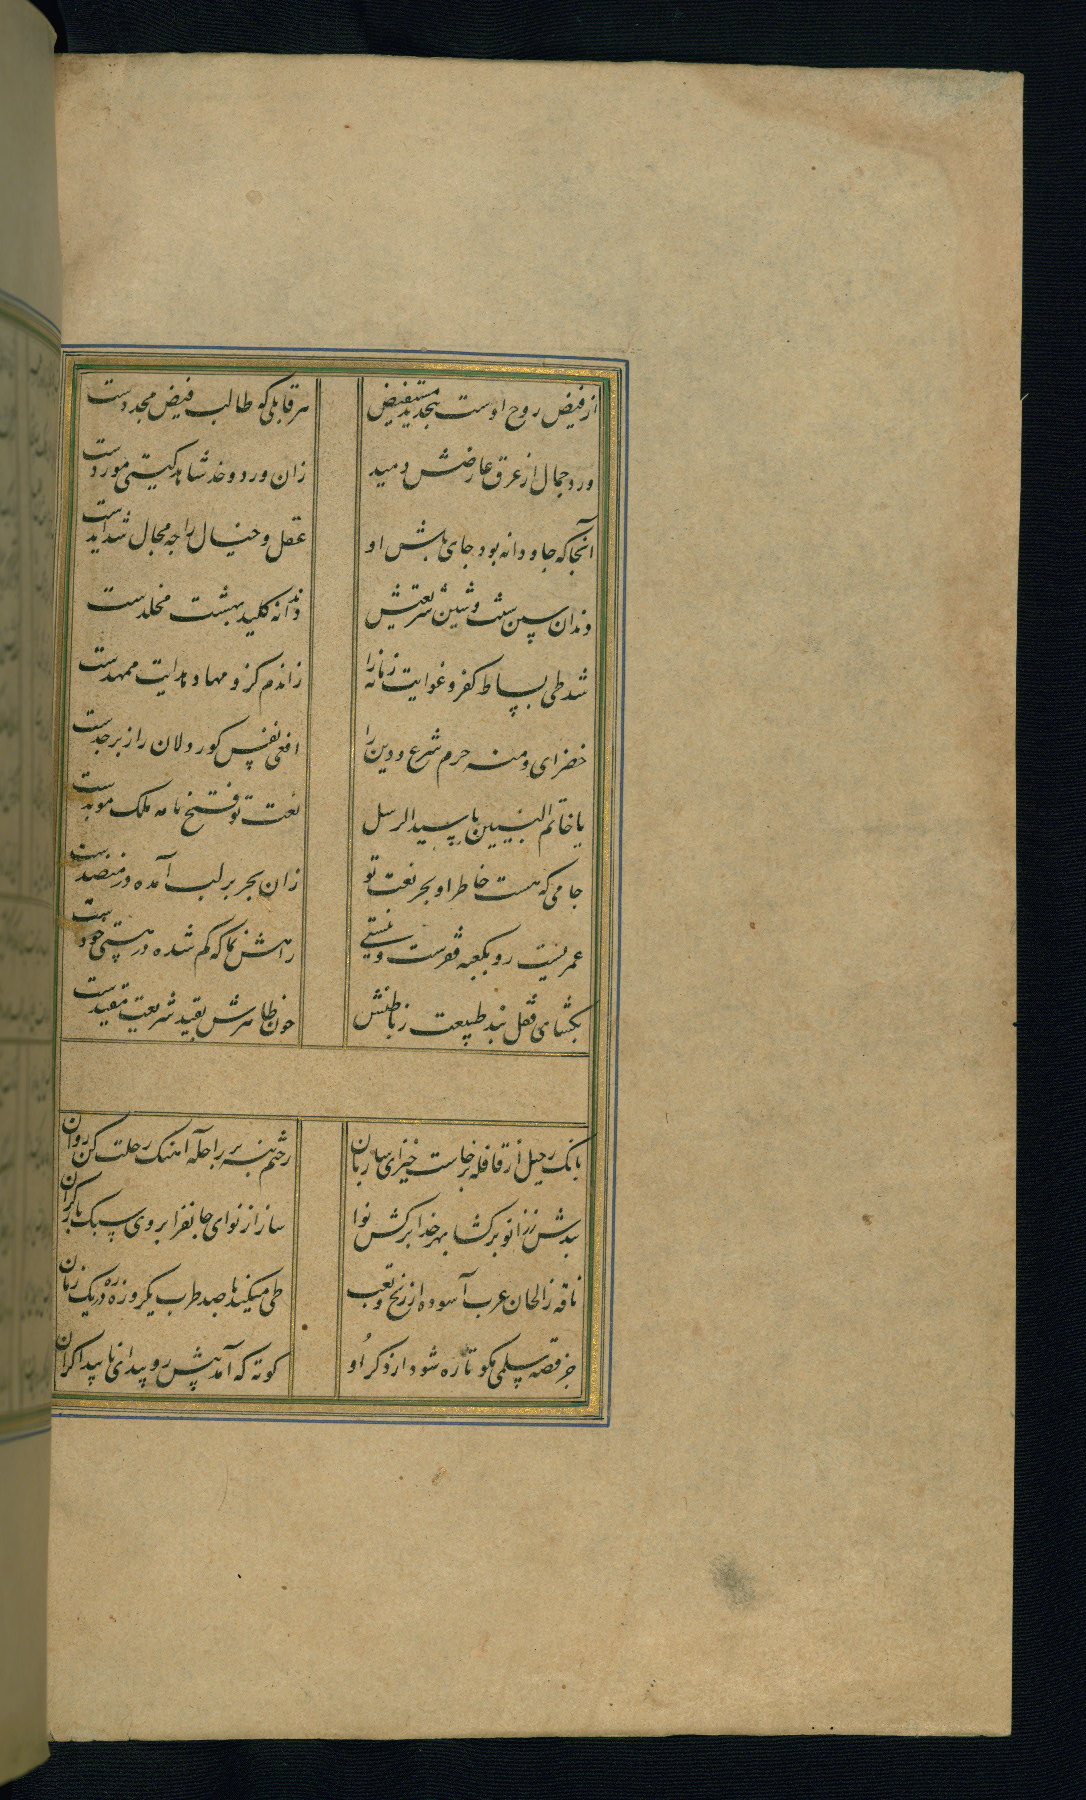 از فیض روح اوست بتجدید مستفیض هر قابلی که طالب فیض مجددست
ورد جمال از عرق عارضش دمید زان ورد و خد شاهد گیتی موردست
آنجا که جاودانه بود جای باش او عقل و خیال را چه مجال شد آیدست
دندان سین سنت و شین شریعتش دندانه کلید بهشت مخلدست
شد طی بساط کفر و غوایت زمانه را زاندم کزو مهاد هدایت ممهدست
خضرای دمنه حرم شرع و دین را افعی نفس کوردلان را زبرجدست
یا خاتم النبیین یا سید الرسل نعت تو فتح نامه ملک موبدست
جامی که هست خاطر او بحر نعت تو زان بحر بر لب آمده در منضدست
عمریست رو بکعبه فقرست و نیستی راهش نما که گم شده در هستی خودست
بگشای قفل بند طبیعت ز باطنش چون ظاهرش بقید شریعت مقیدست
بانگ رحیل از قافله برخاست خیز ای ساربان رختم بنه بر راحله آهنگ رحلت کن روان
بندش ز زانو برگشا بهر خدا برکش نوا ساز از نوای جانفزا بر وی سبک بار گران
ناقه ز الحان عرب آسوده از رنج و تعب طی میکند با صد طرب یکروزه ره در یک زمان
جز قصه سلمی مگو تازه شود از ذکر او کوته که آمد پیش رو بیدای ناپیدا کران